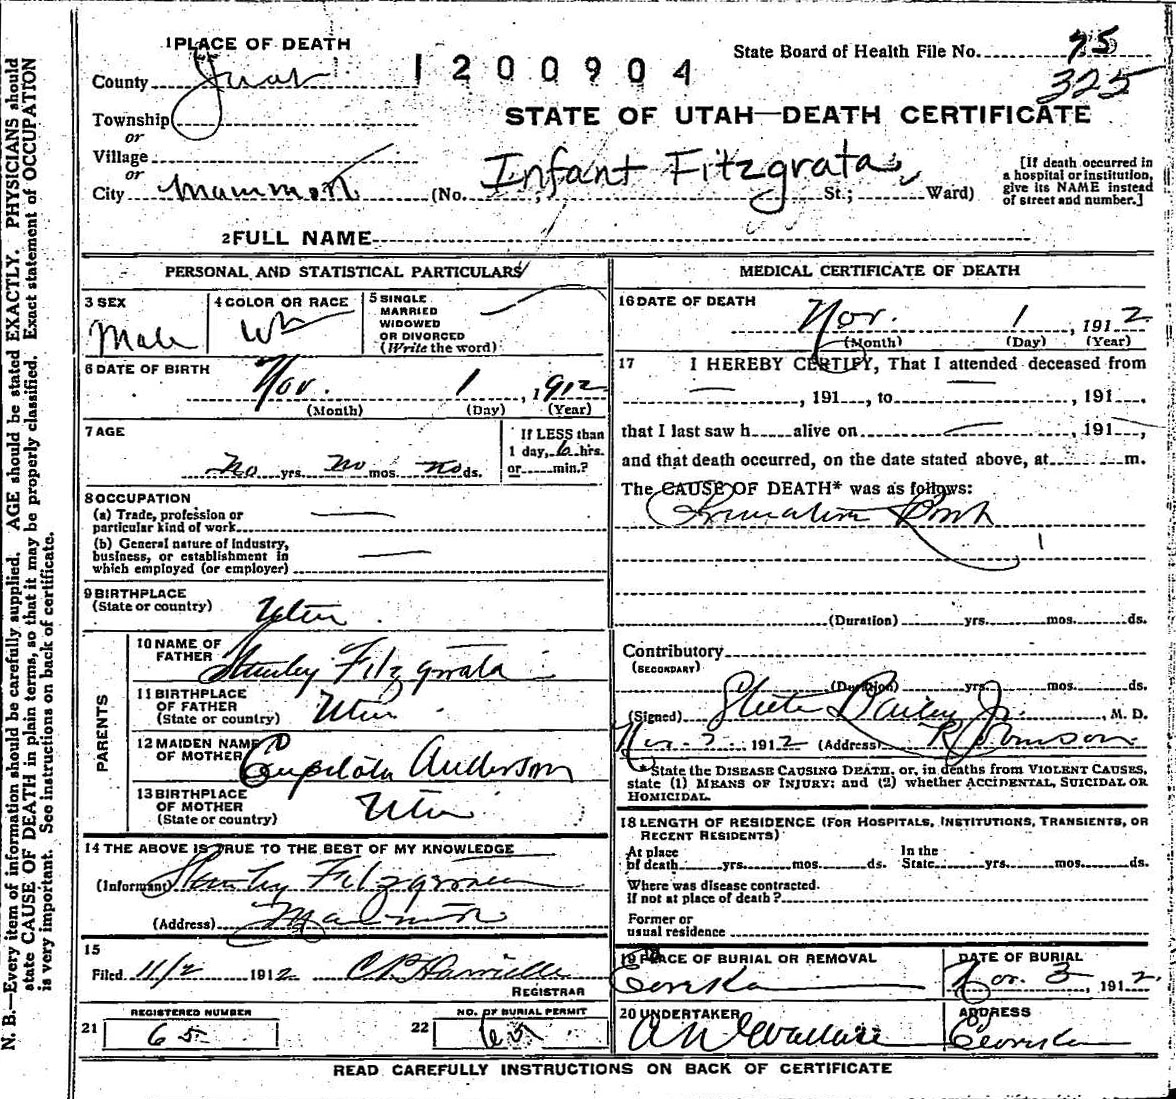 N. B.—Every item of information should be carefully supplied. AGE should be stated EXACTLY. PHYSICIANS should
state CAUSE OF DEATH in plain terms, so that it may be properly classified. Exact statement of OCCUPATION
is very important. See instructions on back of certificate.
1 PLACE OF DEATH
State Board of Health File No. 75
County Juab
1200904
325
STATE OF UTAH—DEATH CERTIFICATE
Township
or
Village
or
City Mammoth (No. Infant Fitzgrata St.; Ward)
[If death occurred in
a hospital or institution,
give its NAME instead
of street and number.]
2 FULL NAME
PERSONAL AND STATISTICAL PARTICULARS
3 SEX
Male
4 COLOR OR RACE
Wh
5 SINGLE
MARRIED
WIDOWED
OR DIVORCED
(Write the word)
6 DATE OF BIRTH
Nov. 1, 1912
(Month) (Day) (Year)
7 AGE
No yrs. No mos. No ds.
If LESS than
1 day, 6 hrs.
or min.?
8 OCCUPATION
(a) Trade, profession or
particular kind of work
(b) General nature of industry,
business, or establishment in
which employed (or employer)
9 BIRTHPLACE
(State or country)
Utah
PARENTS
10 NAME OF
FATHER Stanley Fitzgrata
11 BIRTHPLACE
OF FATHER
(State or country) Utah
12 MAIDEN NAME
OF MOTHER Anderson
13 BIRTHPLACE
OF MOTHER
(State or country) Utah
14 THE ABOVE IS TRUE TO THE BEST OF MY KNOWLEDGE
(Informant) Stanley
(Address) Mammoth
15
Filed 11/2 1912
REGISTRAR
REGISTERED NUMBER
21 65
NO. OF BURIAL PERMIT
22 65
MEDICAL CERTIFICATE OF DEATH
16 DATE OF DEATH
Nov. 1, 1912
(Month) (Day) (Year)
17 I HEREBY CERTIFY, That I attended deceased from
, 191 , to , 191 ,
that I last saw h alive on , 191 ,
and that death occurred, on the date stated above, at m.
The CAUSE OF DEATH* was as follows:
Premature Birth
(Duration) yrs. mos. ds.
Contributory
(SECONDARY)
(Duration) yrs. mos. ds.
(Signed) Steele Bailey Jr., M. D.
Nov. 2 1912 (Address) Robinson
*State the DISEASE CAUSING DEATH, or, in deaths from VIOLENT CAUSES,
state (1) MEANS OF INJURY; and (2) whether ACCIDENTAL, SUICIDAL OR
HOMICIDAL.
18 LENGTH OF RESIDENCE (FOR HOSPITALS, INSTITUTIONS, TRANSIENTS, OR
RECENT RESIDENTS)
At place
of death yrs. mos. ds. In the
State yrs. mos. ds.
Where was disease contracted.
If not at place of death?
Former or
usual residence
19 PLACE OF BURIAL OR REMOVAL
Eureka
DATE OF BURIAL
Nov. 3, 1912
20 UNDERTAKER
Wallace
ADDRESS
Eureka
READ CAREFULLY INSTRUCTIONS ON BACK OF CERTIFICATE